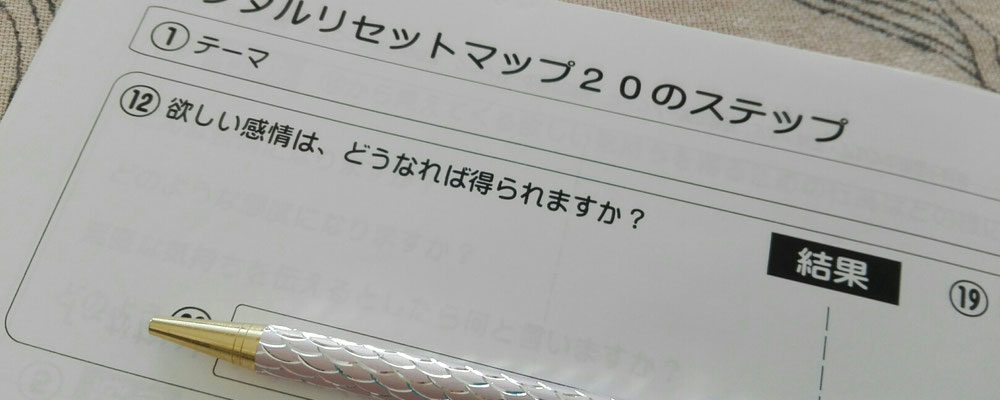 タルリセットマップ２０のステップ
① テーマ
⑫ 欲しい感情は、どうなれば得られますか？
結果
⑲